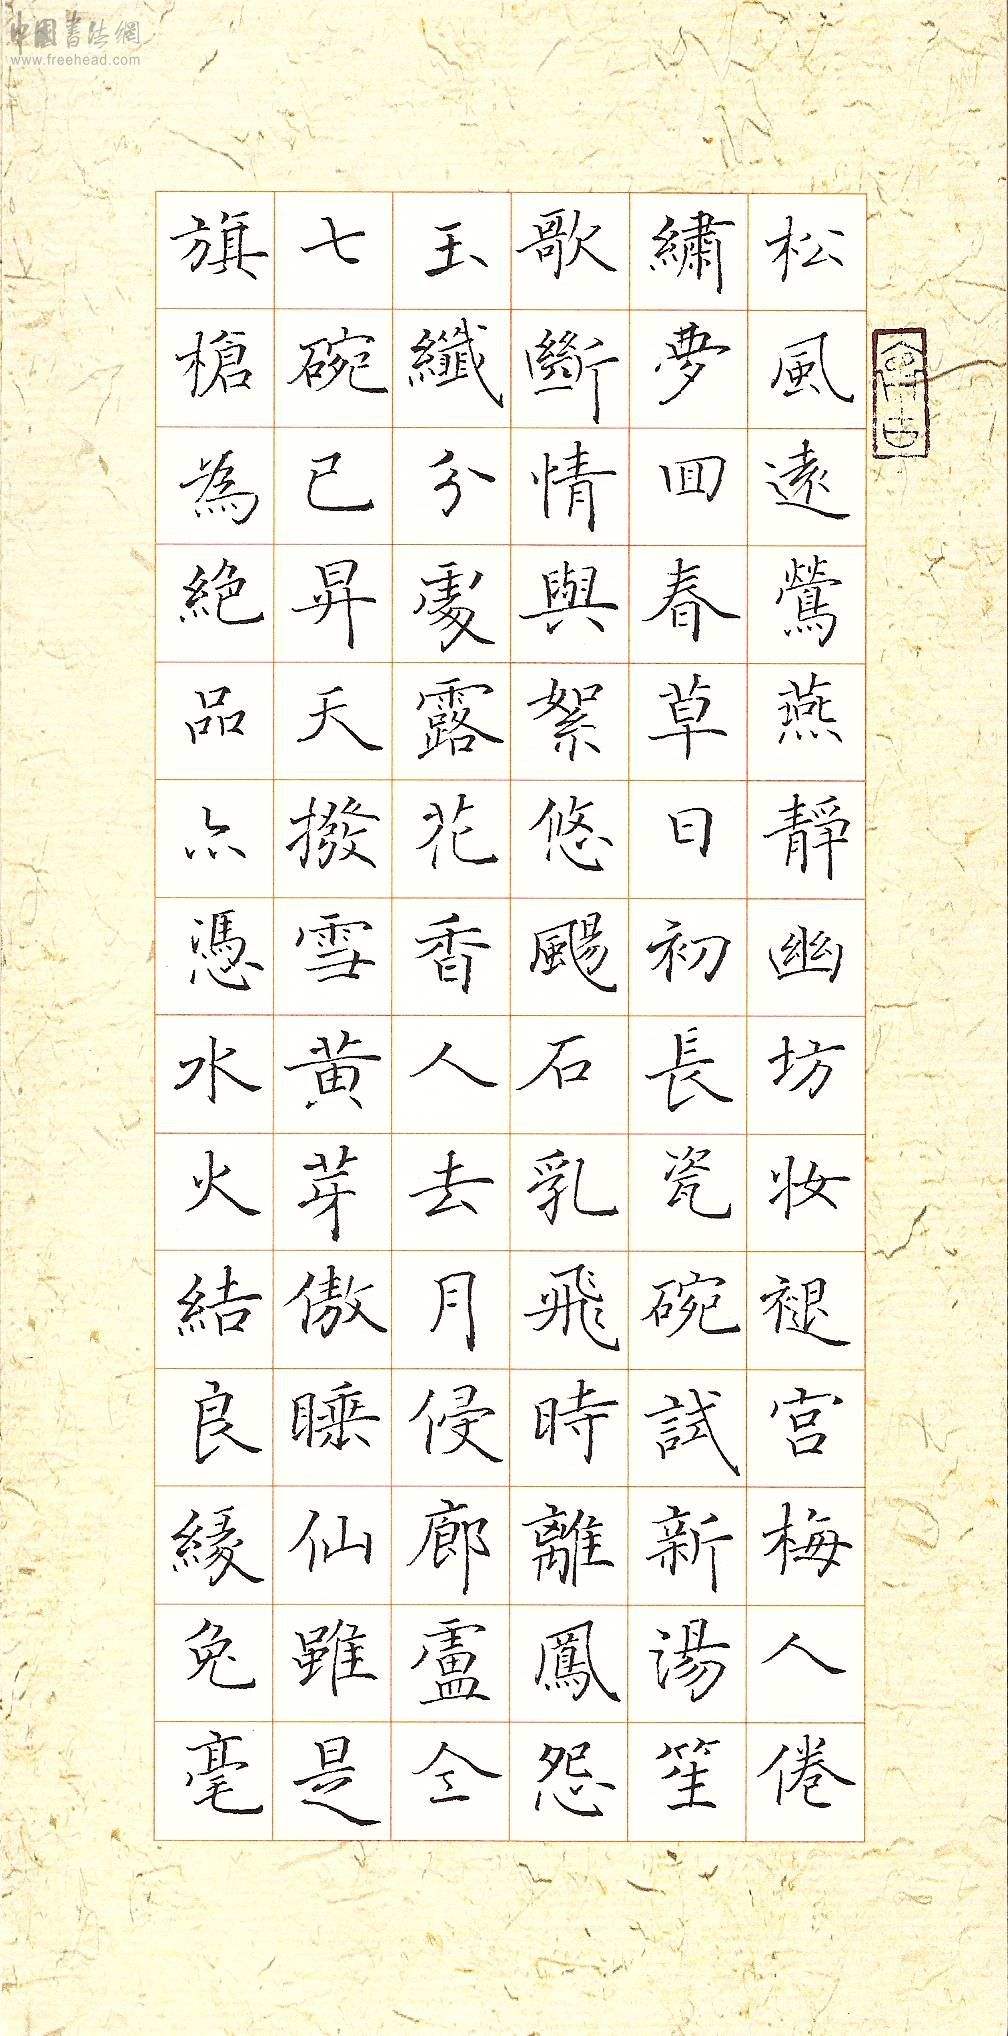 中國書法網
www.freehead.com
松風遠鶯燕靜幽坊妝褪宮梅人倦
繡夢囬春草日初長瓷碗試新湯笙
歌斷情與絮悠颺石乳飛時離鳳怨
玉纖分處露花香人去月侵廊盧仝
七碗已昇天撥雪黃芽傲睡仙雖是
旗槍為絕品亦憑水火結良緣兔毫